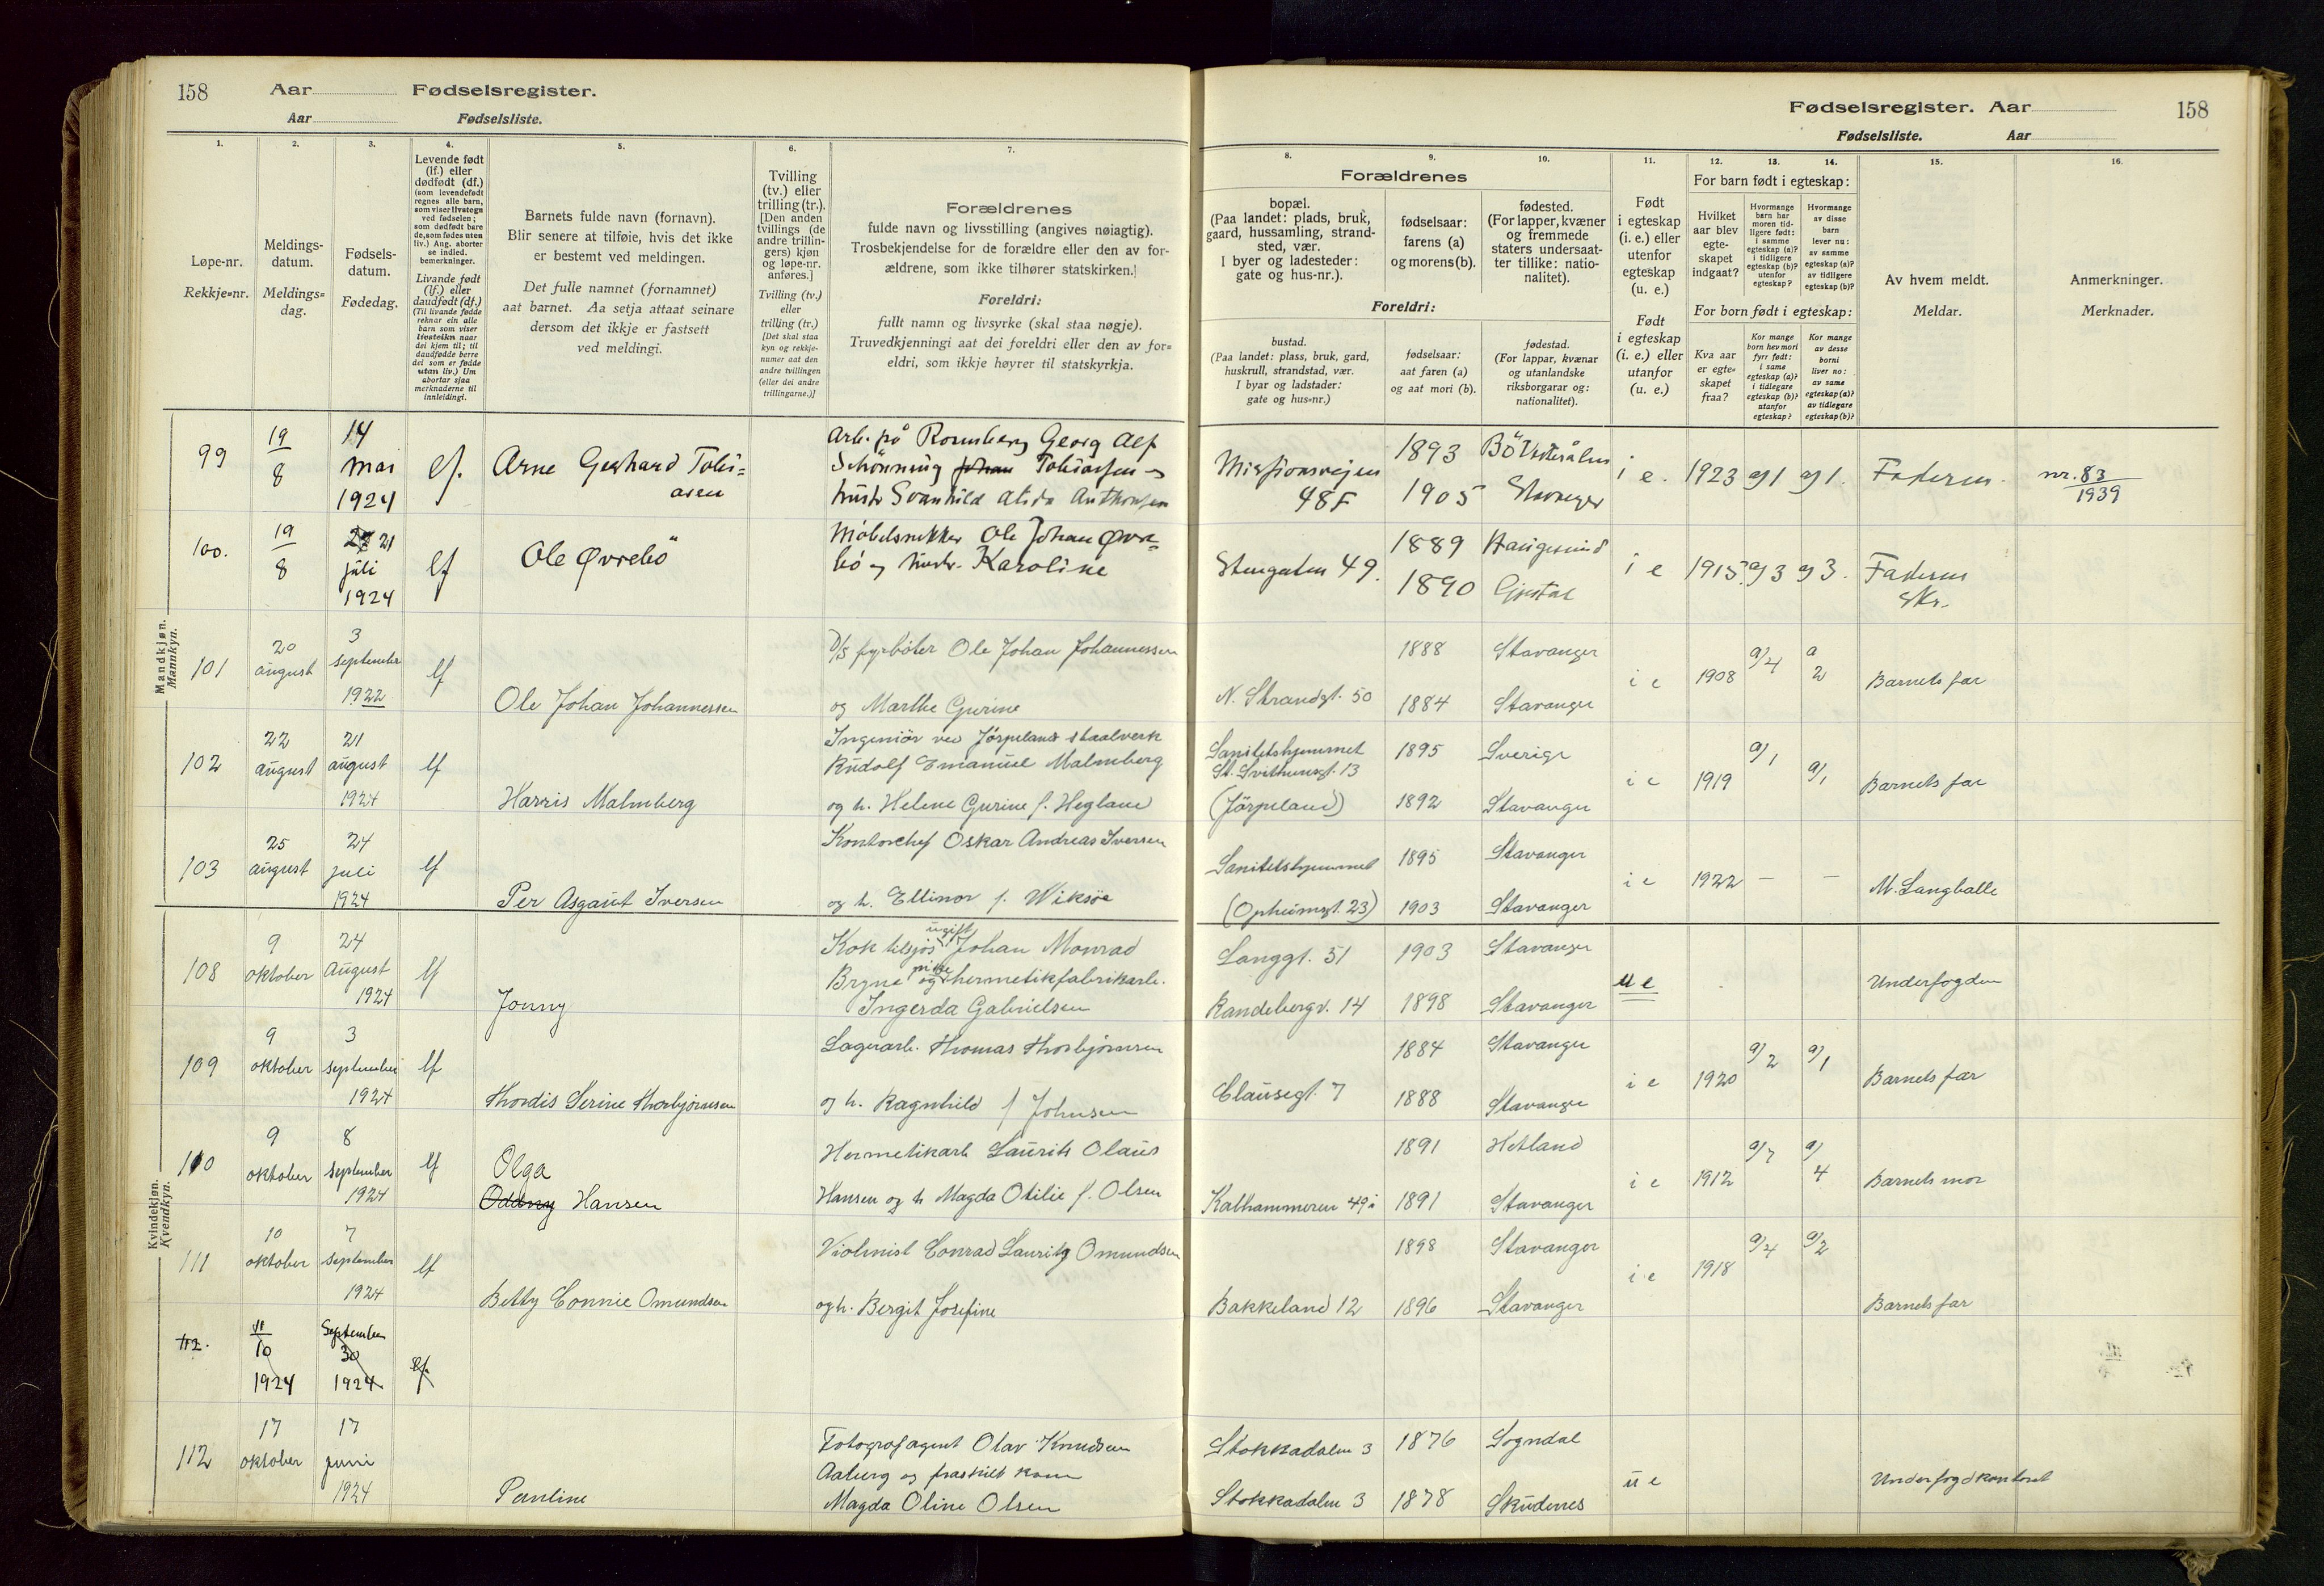 158 Aar Fødselsregister.
Aar Fødselsliste.
Fødselsregister. Aar 158
Fødselsliste. Aar
1.
Løpe-nr.
Rekkje=nr.
2.
Meldings-
datum.
Meldings=
dag.
3.
Fødsels-
datum.
Fødedag.
4.
Levende født
(lf.) eller
dødfødt (df.)
(som levendefødt
regnes alle barn,
som viser livstegn
ved fødselen;
som dødfødt bare
de, som fødes uten
liv.) Ang. aborter
se indled.
bemerkninger.
Livande født
(lf.) eller
daudfødt (df.)
(Til livande fødde
reknar ein alle
barn som viser
livsteikn naar
dei kjem til; til
daudfødde berre
dei som er fødde
utan liv.) Um
abortar sjaa
merknaderne til
innleidingi.
5.
Barnets fulde navn (fornavn).
Blir senere at tilføie, hvis det ikke
er bestemt ved meldingen.
Det fulle namnet (fornamnet)
aat barnet. Aa setja attaat seinare
dersom det ikkje er fastsett
ved meldingi.
6.
Tvilling
(tv.) eller
trilling (tr.).
[Den anden
tvillings (de
andre trillin-
gers) kjøn
og løpe-nr.
anføres.]
Tvilling (tv.)
eller
trilling (tr.)
[Det skal staa
kyn og rekkje-
numer aat den
andre tvillingen
(eller dei andre
trillingarne.)]
7.
Forældrenes
fulde navn og livsstilling (angives nøiagtig).
Trosbekjendelse for de forældre eller den av for-
ældrene, som ikke tilhører statskirken.]
Foreldri:
fullt namn og livsyrke (skal staa nøgje).
Truvedkjenningi aat dei foreldri eller den av for=
eldri, som ikkje høyrer til statskyrkja.
Forældrenes
8.
bopæl.
(Paa landet: plads, bruk,
gaard, hussamling, strand-
sted, vær.
I byer og ladesteder:
gate og hus-nr.).
9.
fødselsaar:
farens (a)
og morens (b).
10.
fødested.
(For lapper, kvæner
og fremmede
staters undersaat-
ter tillike: natio-
nalitet).
Foreldri:
bustad.
(Paa landet: plass, bruk, gard,
huskrull, strandstad, vær.
I byar og ladstader:
gate og hus=nr.)
fødselsaar:
aat faren (a)
og aat mori (b).
fødestad.
(For lappar, kvænar
og utanlandske
riksborgarar og:
nationalitet).
11.
Født
i egteskap
(i. e.) eller
utenfor
egteskap
(u. e.)
Født
i egteskap
(i. e.) eller
utanfor
(u. e.)
For barn født i egteskap:
12.
Hvilket
aar blev
egte-
skapet
indgaat?
13.
Hvormange
barn har
moren tid-
ligere født:
i samme
egteskap (a)?
i tidligere
egteskap (b)?
utenfor
egteskap?
14.
Hvormange
av disse
barn
lever nu:
av samme
egteskap (a)?
av tidligere
egteskap (b)?
For born født i egteskap:
Kva aar
er egte=
skapet
fraa?
Kor mange
born hev mori
fyrr født:
i same
egteskap (a)?
i tidlegare
egteskap (b)?
utanfor
egteskap?
Kor mange
av desse
borni
liver no:
av same
egteskap (a)?
av tidlegare
egteskap (b)?
15.
Av hvem meldt.
Meldar.
16.
Anmerkninger.
Merknader.
Mandkjøn.
Mannkyn.
99 19/8 14 mai 1924 lf. Arne Gerhard Tobi=
asen
Arb. på Rosenberg Georg Alf
Schönning Johan Tobiassen og
hustr Svanhild Alida Anthonsen
Missionsveien
48F
1893
1905 Stavanger
i e. 1923 a/1 a/1. Faderen. nr. 83
1939
100. 19/8 21 juli 1924 lf Ole Øvrebö
Möbelsnekker Ole Johan Øvre=
bö og hustr. Karoline
Stengaten 49.
1889 Haugesund
1890 Gjestal
i e 1915 a/3 a/3. Faderen
Skr.
101 20 august 3 september 1922 lf Ole Johan Johannessen
D/S fyrböter Ole Johan Johannessen
og Marthe Gurine
N. Strandgt. 50
1888 Stavanger
1884 Stavanger
i e 1908 a/4 a 2 Barnets far
102 22 august 21 august 1924 lf Harris Malmberg
Ingeniör ved Jörpeland staalverk
Rudolf Emanuel Malmberg
og h. Helene Gurine f. Hegland
Sanitetshjemmet
St. Svithunsgt. 13
(Jörpeland)
1895 Sverige
1892 Stavanger
i e 1919 a/1 a/1 Barnets far
103 25 august 24 juli 1924 lf Per Asgaut Iversen
Kontorchef Oskar Andreas Iversen
og h. Ellinor f. Wiksöe
Sanitetshjemmet
(Opheimsgt. 23)
1895 Stavanger
1903 Stavanger
i e 1922 — — M. Langballe
Kvindekjøn.
Kvendkyn.
108 9 oktober 24 August 1924 lf Jonny
ugift
Kok tilsjös Johan Monrad
Bryne og pike hermetikfabrikarb.
Ingerda Gabrielsen
Langgt. 51
Randebergv. 14
1903 Stavanger
1898 Stavanger
u e Underfogden
109 9 oktober 3 september 1924 lf Thordis Serine Thorbjörnsen
Lagerarb. Thomas Thorbjörnsen
og h. Ragnhild f Johnsen
Clausegt. 7
1884 Stavanger
1888 Stavanger
i e 1920 a/2 a/1 Barnets far
110 9 oktober 8 september 1924 lf Olga
Oddny Hansen
Hermetikarb Laurits Olaus
Hansen og h Magda Otilie f. Olsen
Kalhammeren 49
1891 Hetland
1891 Stavanger
i e 1912 a/7 a/4 Barnets mor
111 10 oktober 7 september 1924 lf Betty Connie Omundsen
Violinist Conrad Lauritz Omundsen
og h. Bergit Josefine
Bakkeland 12
1898 Stavanger
1896 Stavanger
i e 1918 a/4 a/2 Barnets far
112. 11/10 1924 September 30 1924 lf
112 17 oktober 17 juni 1924 Pauline
Fotografagent Olav Knudsen
Aaberg og fraskilt kone
Magda Oline Olsen
Stokkadalen 3
Stokkadalen 3
1876 Sogndal
1878 Skudenes
u e Underfogdkontoret